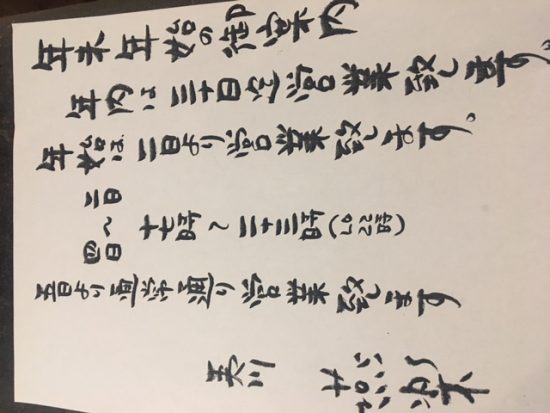 年末年始の御案内
年内は三十日迄営業致します。
年始は二日より営業致します。
二日〜四日 十七時〜二十三時(LO22時)
五日より通常通り営業致します